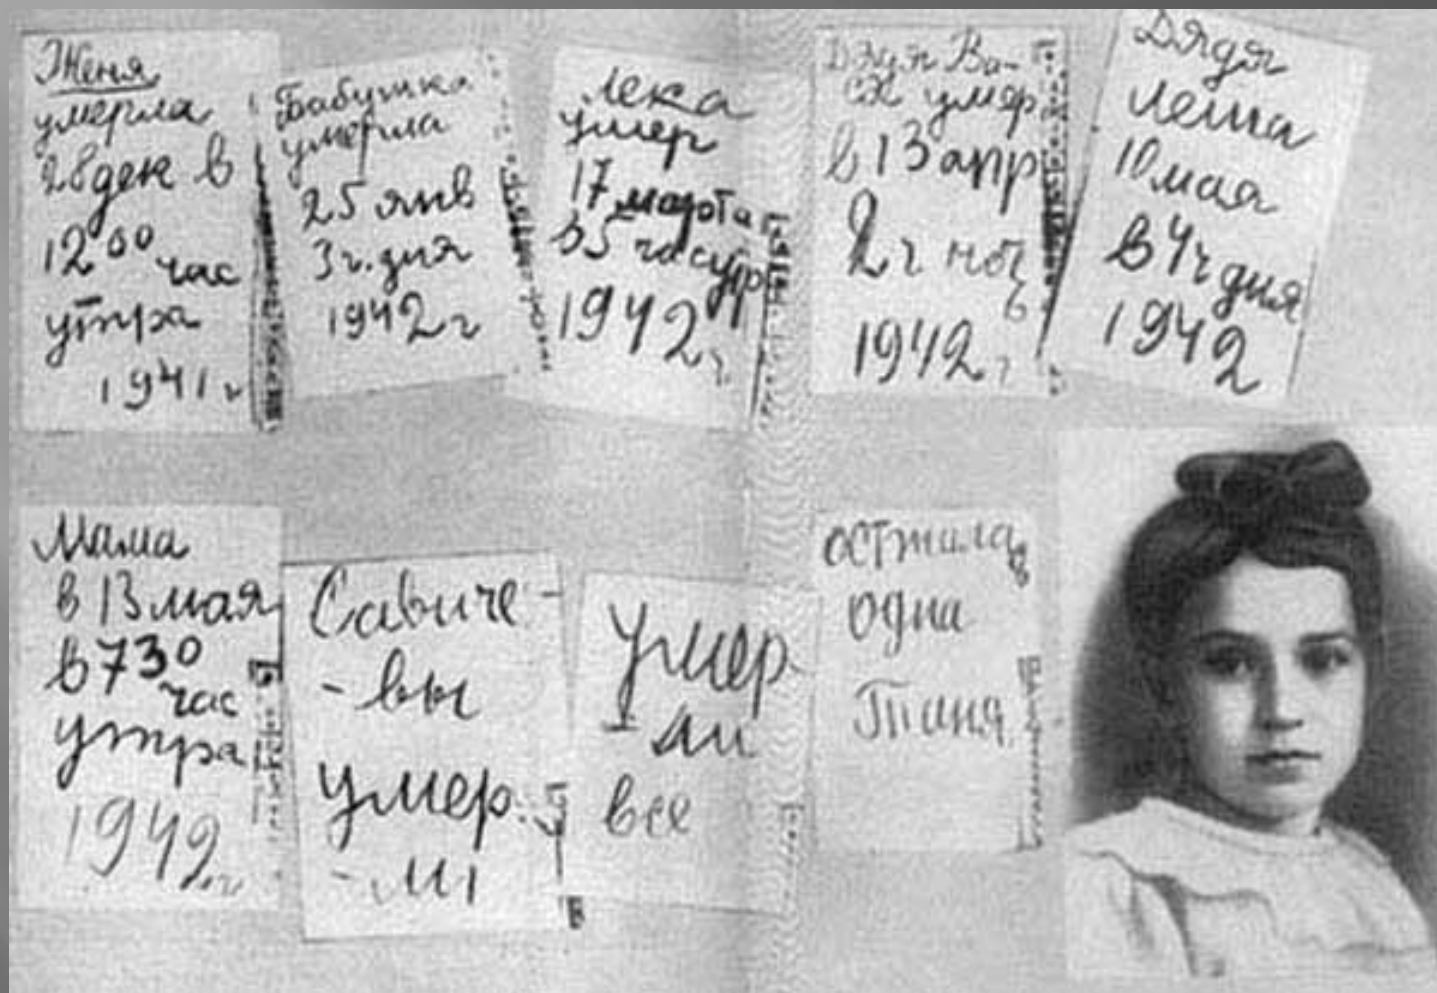 Женя
умерла
28 дек в
12 00 час
утра
1941 г
Бабушка
умерла
25 янв
3 ч. дня
1942 г
Лека
умер
17 марта
в 5 час утр
1942 г.
Дядя Ва-
ся умер
в 13 апр
2 ч ноч
ь
1942 г
Дядя
Леша
10 мая
в 4 ч дня
1942
Мама
в 13 мая
в 7 30
час
утра
1942 г
Савиче-
-вы
умер.
-ли
Умер
-ли
все
осталась
одна
Таня